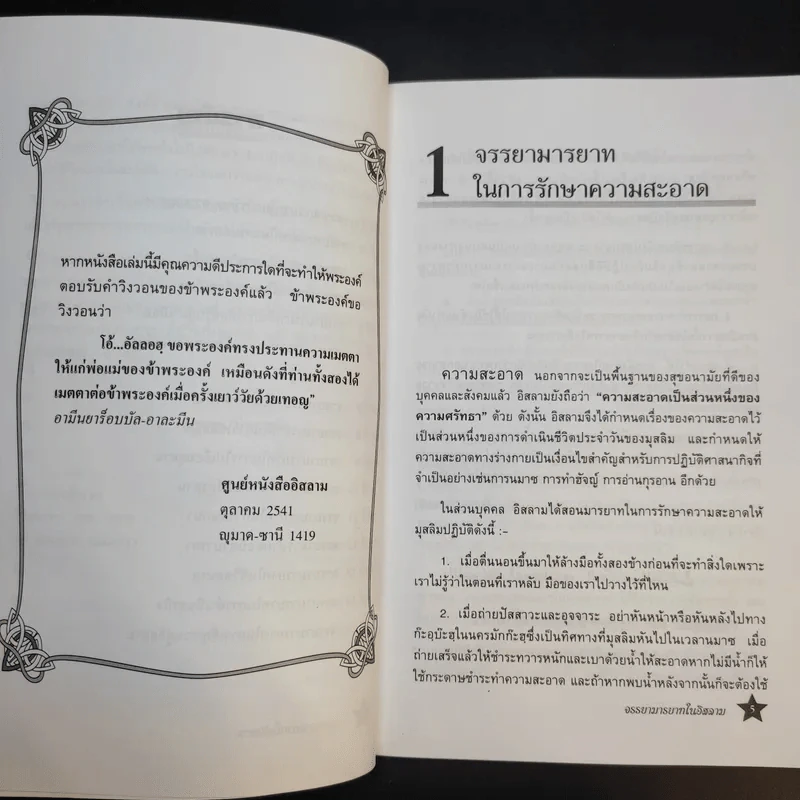 หากหนังสือเล่มนี้มีคุณความดีประการใดที่จะทำให้พระองค์
ตอบรับคำวิงวอนของข้าพระองค์แล้ว ข้าพระองค์ขอ
วิงวอนว่า
โอ้...อัลลอฮฺ ขอพระองค์ทรงประทานความเมตตา
ให้แก่พ่อแม่ของข้าพระองค์ เหมือนดังที่ท่านทั้งสองได้
เมตตาต่อข้าพระองค์เมื่อครั้งเยาว์วัยด้วยเทอญ"
อามีนยาร็อบบัล-อาละมีน
ศูนย์หนังสืออิสลาม
ตุลาคม 2541
ญุมาด-ซานี 1419
1 จรรยามารยาท
ในการรักษาความสะอาด
ความสะอาด นอกจากจะเป็นพื้นฐานของสุขอนามัยที่ดีของ
บุคคลและสังคมแล้ว อิสลามยังถือว่า "ความสะอาดเป็นส่วนหนึ่งของ
ความศรัทธา" ด้วย ดังนั้น อิสลามจึงได้กำหนดเรื่องของความสะอาดไว้
เป็นส่วนหนึ่งของการดำเนินชีวิตประจำวันของมุสลิม และกำหนดให้
ความสะอาดทางร่างกายเป็นเงื่อนไขสำคัญสำหรับการปฏิบัติศาสนากิจที่
จำเป็นอย่างเช่นการนมาซ การทำฮัจญ์ การอ่านกุรอาน อีกด้วย
ในส่วนบุคคล อิสลามได้สอนมารยาทในการรักษาความสะอาดให้
มุสลิมปฏิบัติดังนี้ :-
1. เมื่อตื่นนอนขึ้นมาให้ล้างมือทั้งสองข้างก่อนที่จะทำสิ่งใดเพราะ
เราไม่รู้ว่าในตอนที่เราหลับ มือของเราไปวางไว้ที่ไหน
2. เมื่อถ่ายปัสสาวะและอุจจาระ อย่าหันหน้าหรือหันหลังไปทาง
ก๊ะอฺบ๊ะฮฺในนครมักก๊ะฮฺซึ่งเป็นทิศทางที่มุสลิมหันไปในเวลานมาซ เมื่อ
ถ่ายเสร็จแล้วให้ชำระทวารหนักและเบาด้วยน้ำให้สะอาดหากไม่มีน้ำก็ให้
ใช้กระดาษชำระทำความสะอาด และถ้าหากพบน้ำหลังจากนั้นก็จะต้องใช้
จรรยามารยาทในอิสลาม 5